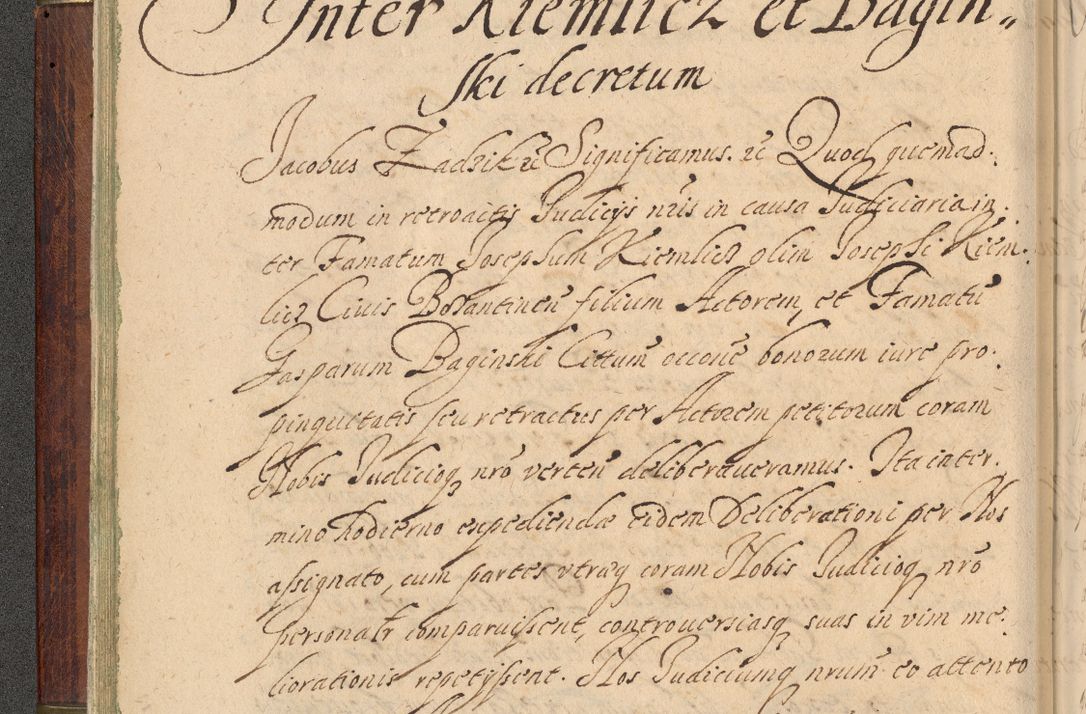 Inter Kiemlicz et Bagin„
ski decretum
Jacobus Zadzik etc Significamus. etc Quod quemad.
modum in retroactis Judicijs nris in causa Judiciaria in.
ter Famatum Josephum Kiemlicz olim Josephi Kiem.
licz Ciuis Bozantinen filium Actorem, et Famatū
Gasparum Baginski Cittum occone bonorum iure pro.
pinquitatis seu retractus per Actorem petitorum coram
Nobis Judicioq nro verten deliberaueramus. Ita in ter.
mino hodierno expediendæ eidem Deliberationi per Nos
assignato, cum partes vtraq coram Nobis Judicioq nro
personalr comparuissent, controuersiasq suas in vim me.
liorationis repetijssent. Nos Judiciumq nrum eo attento